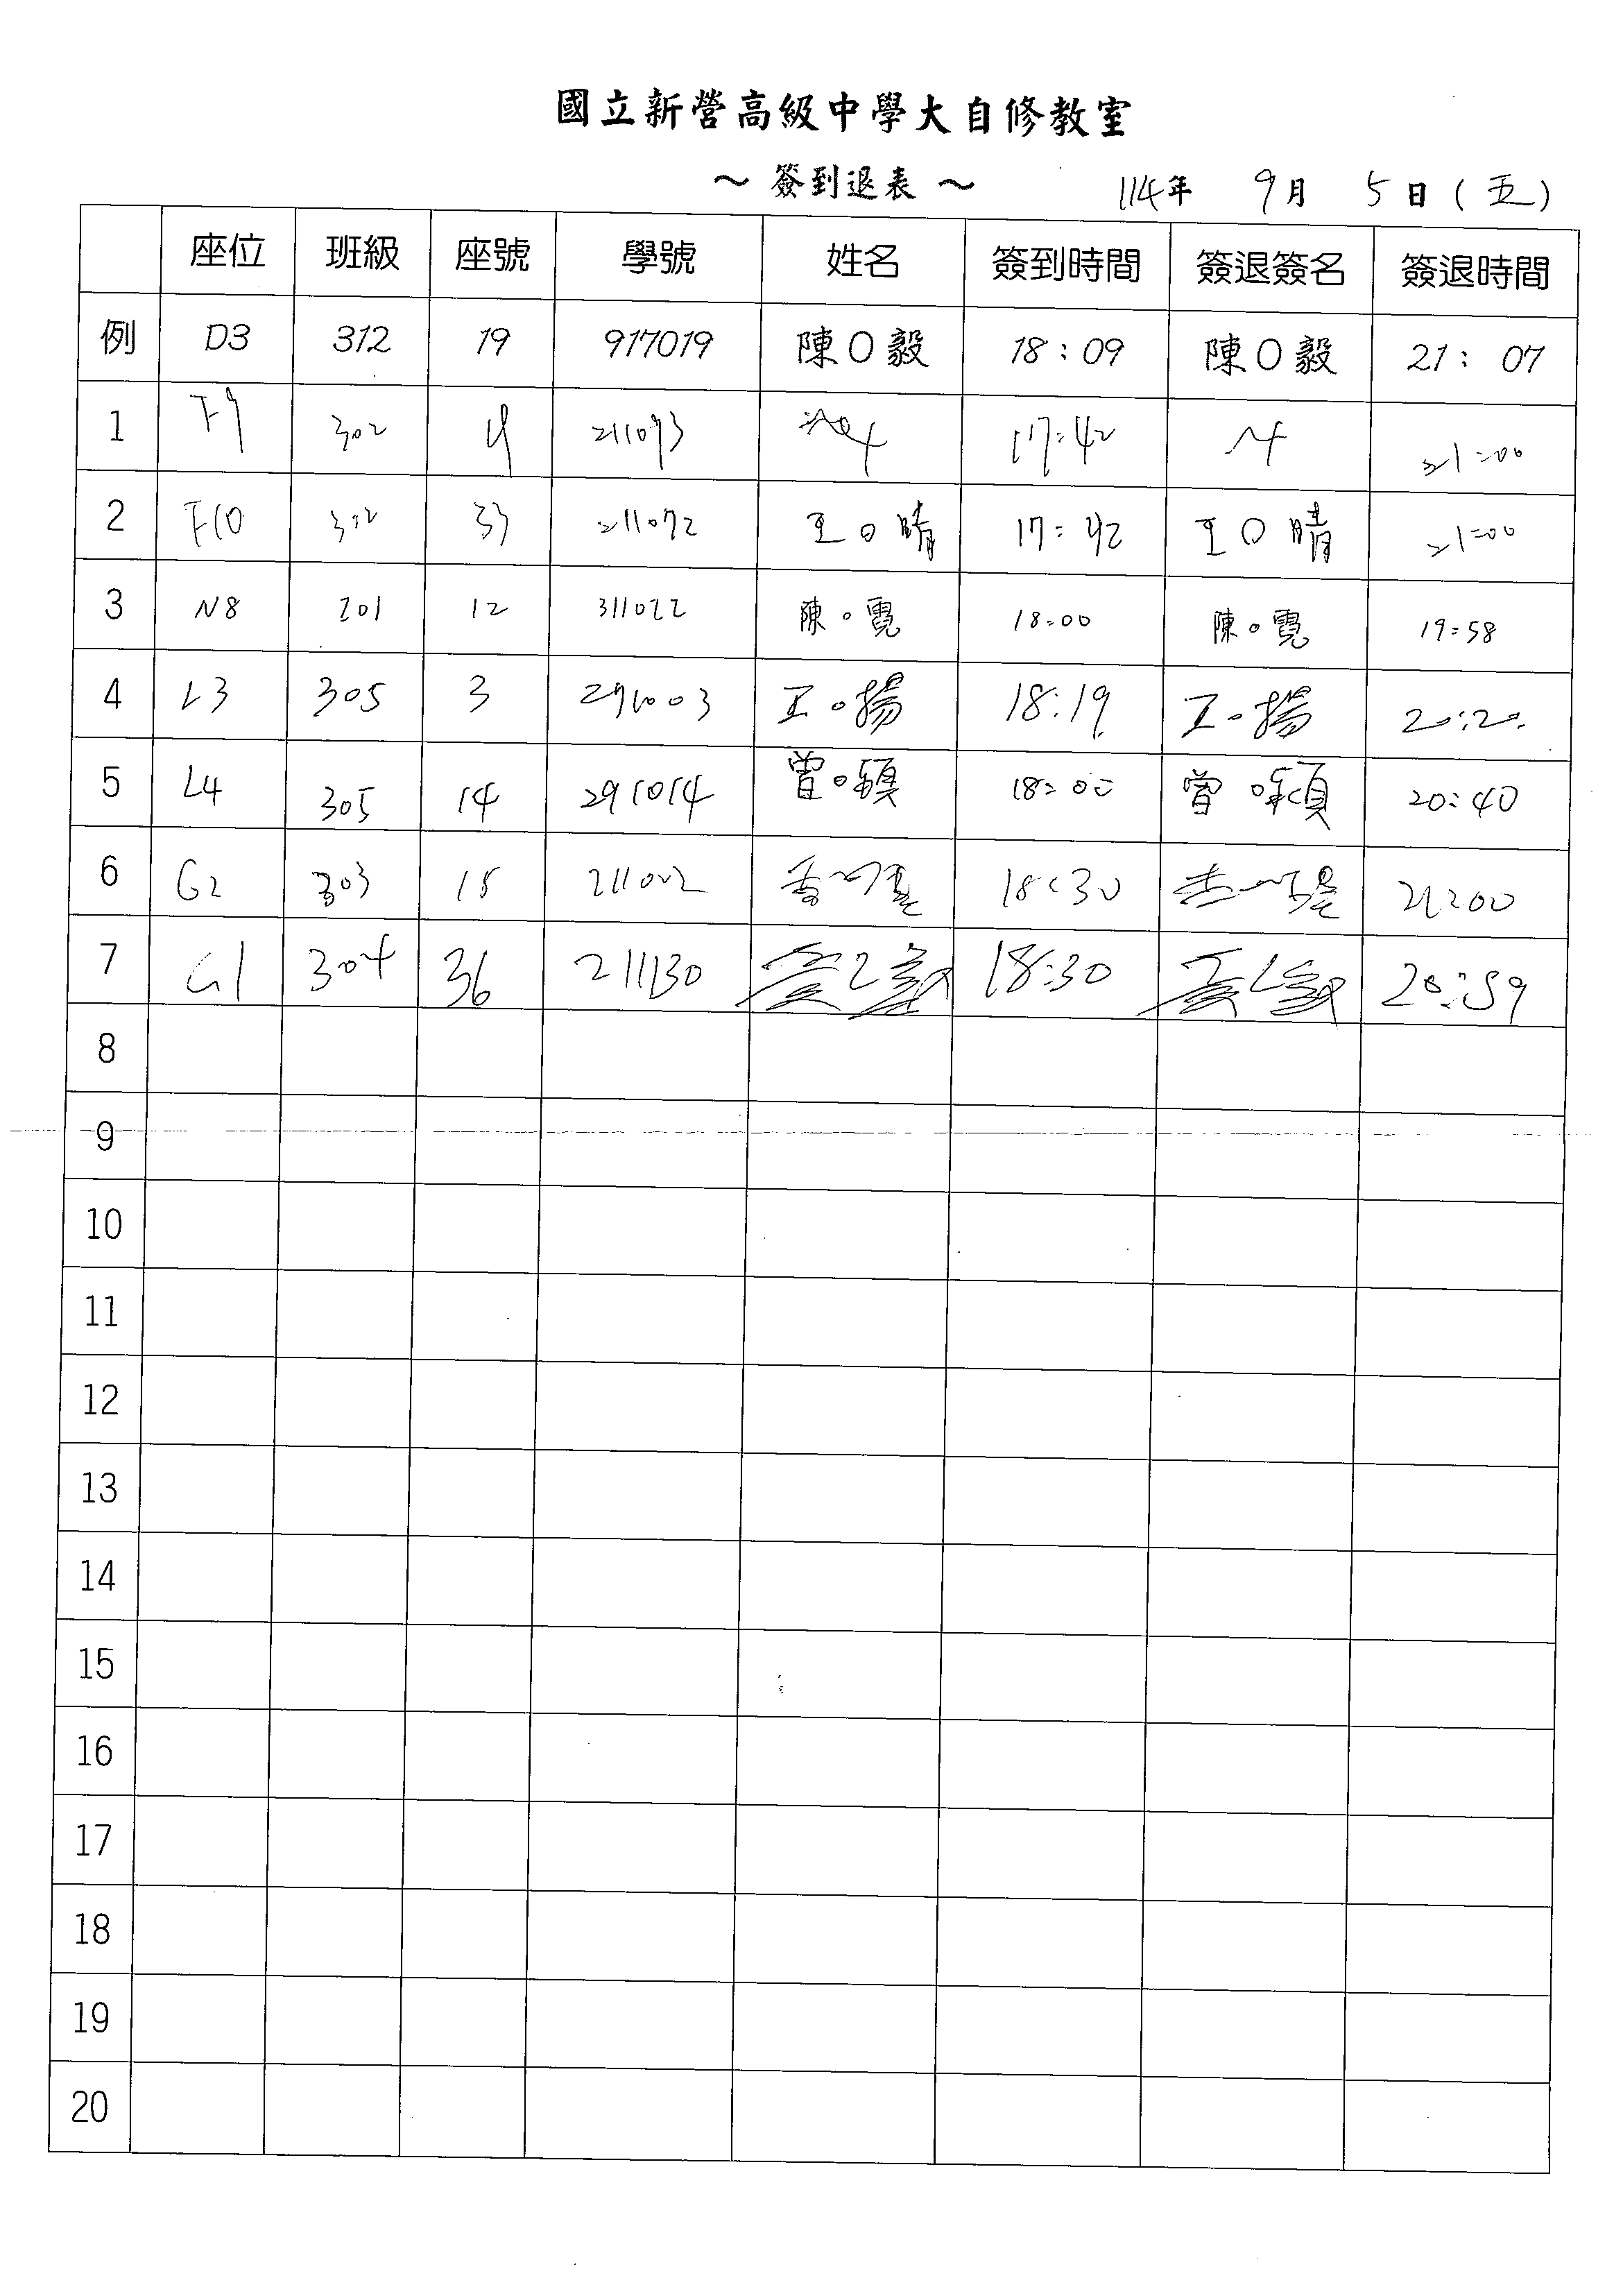 國立新營高級中學大自修教室
～ 簽到退表 ～ 114年 9月 5日(五)
座位 班級 座號 學號 姓名 簽到時間 簽退簽名 簽退時間
例 D3 312 19 917019 陳〇毅 18:09 陳〇毅 21:07
1 F9 302 211093 17:42 21:00
2 F10 302 33 211072 王〇晴 17:42 王〇晴 21:00
3 N8 201 12 311022 陳〇霓 18:00 陳〇霓 19:58
4 L3 305 3 291003 王〇揚 18:19 王〇揚 20:20
5 L4 305 14 291014 曾〇穎 18:00 曾〇穎 20:40
6 G2 303 15 211002 18:30 21:00
7 G1 304 36 211130 18:30 20:59
8
9
10
11
12
13
14
15
16
17
18
19
20